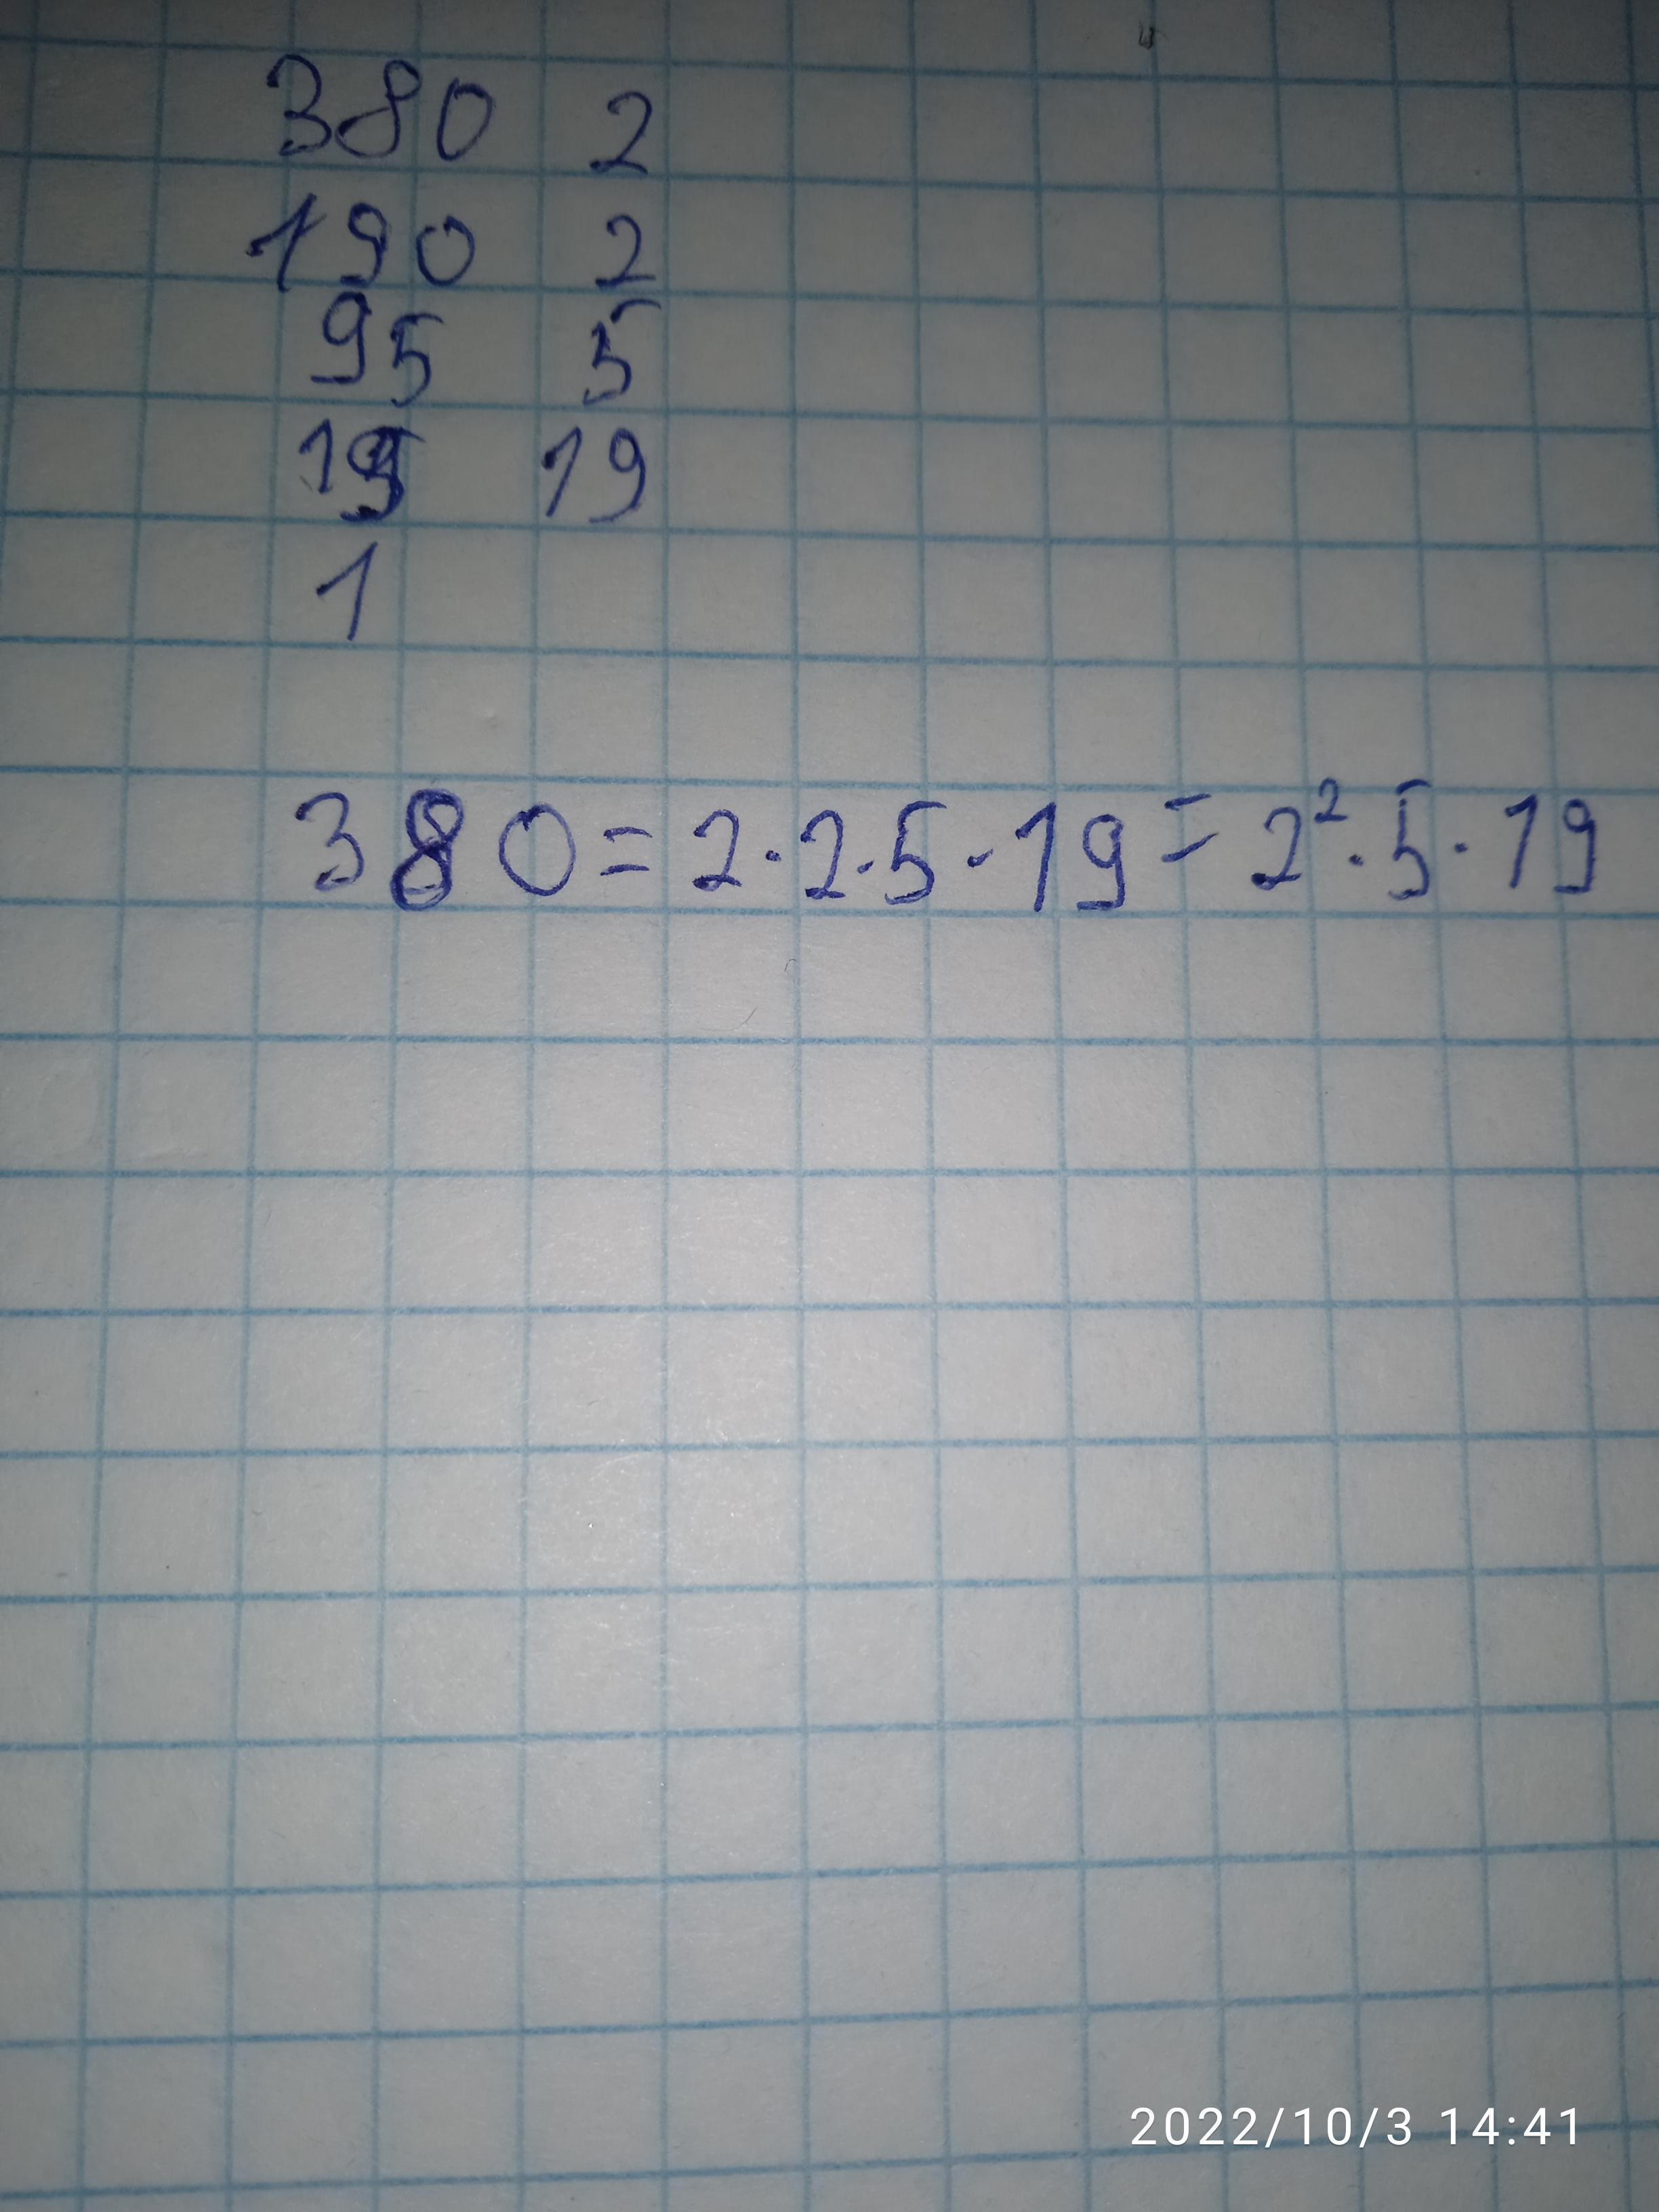 380 2
190 2
95 5
19 19
1
380 = 2·2·5·19 = 2²·5·19
2022/10/3 14:41